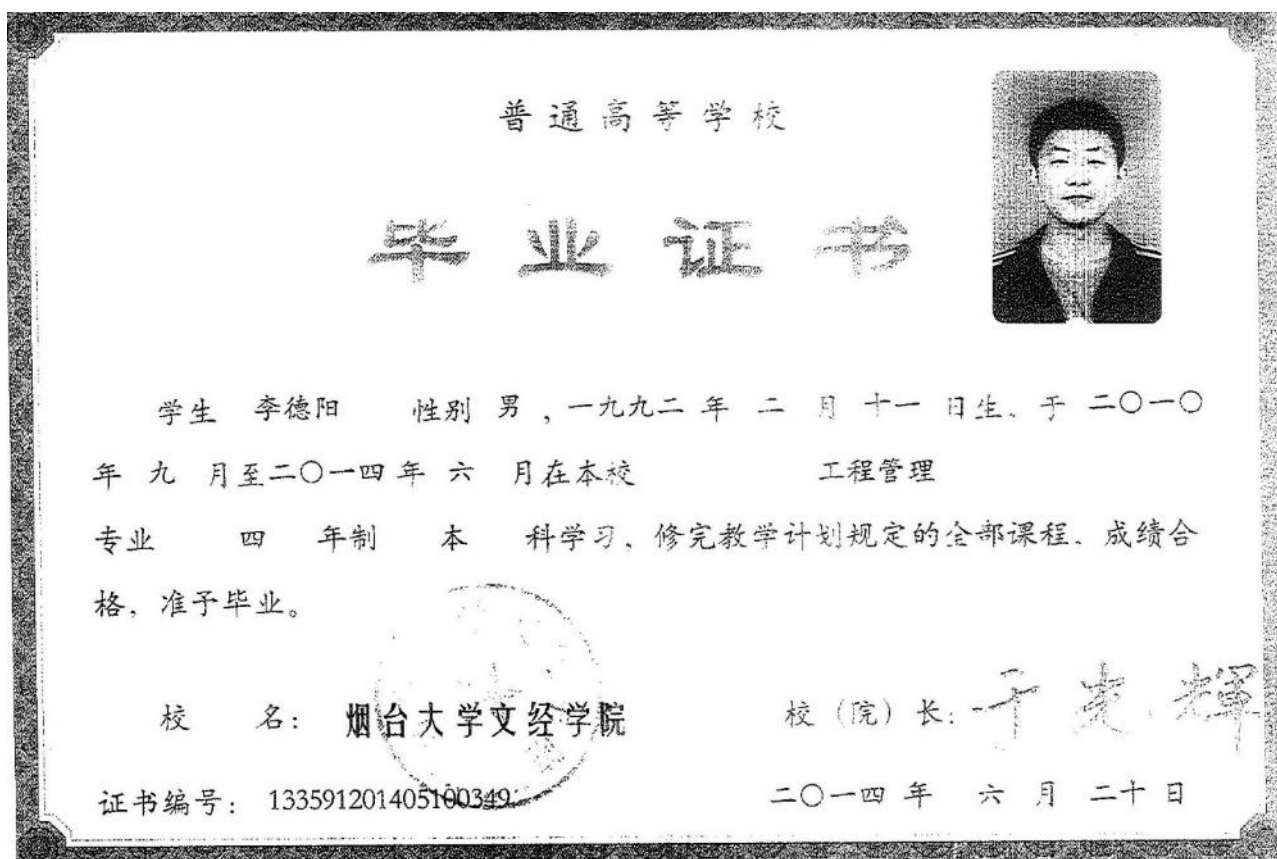 普通高等学校
毕业证书
学生 李德阳 性别 男 ，一九九二 年 二 月 十一 日生、于 二〇一〇
年 九 月至二〇一四 年 六 月在本校 工程管理
专业 四 年制 本 科学习、修完教学计划规定的全部课程、成绩合
格，准予毕业。
校 名： 烟台大学文经学院 校（院）长：于光辉
证书编号： 133591201405100349 二〇一四 年 六 月 二十 日